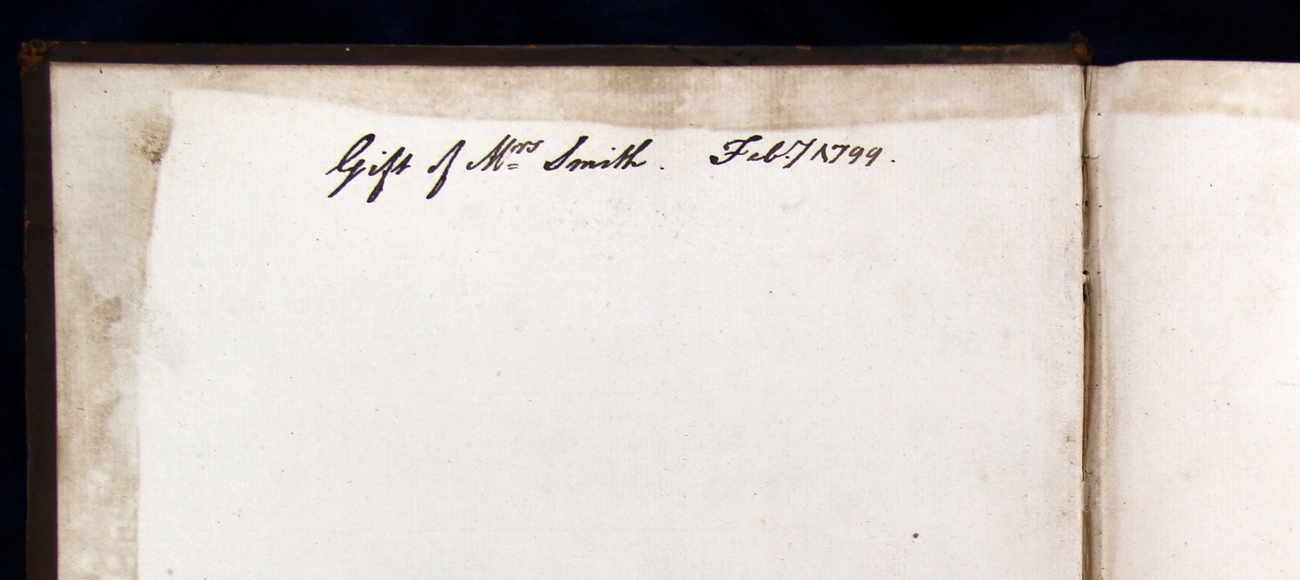 Gift of Mrs Smith. Feby 1799.